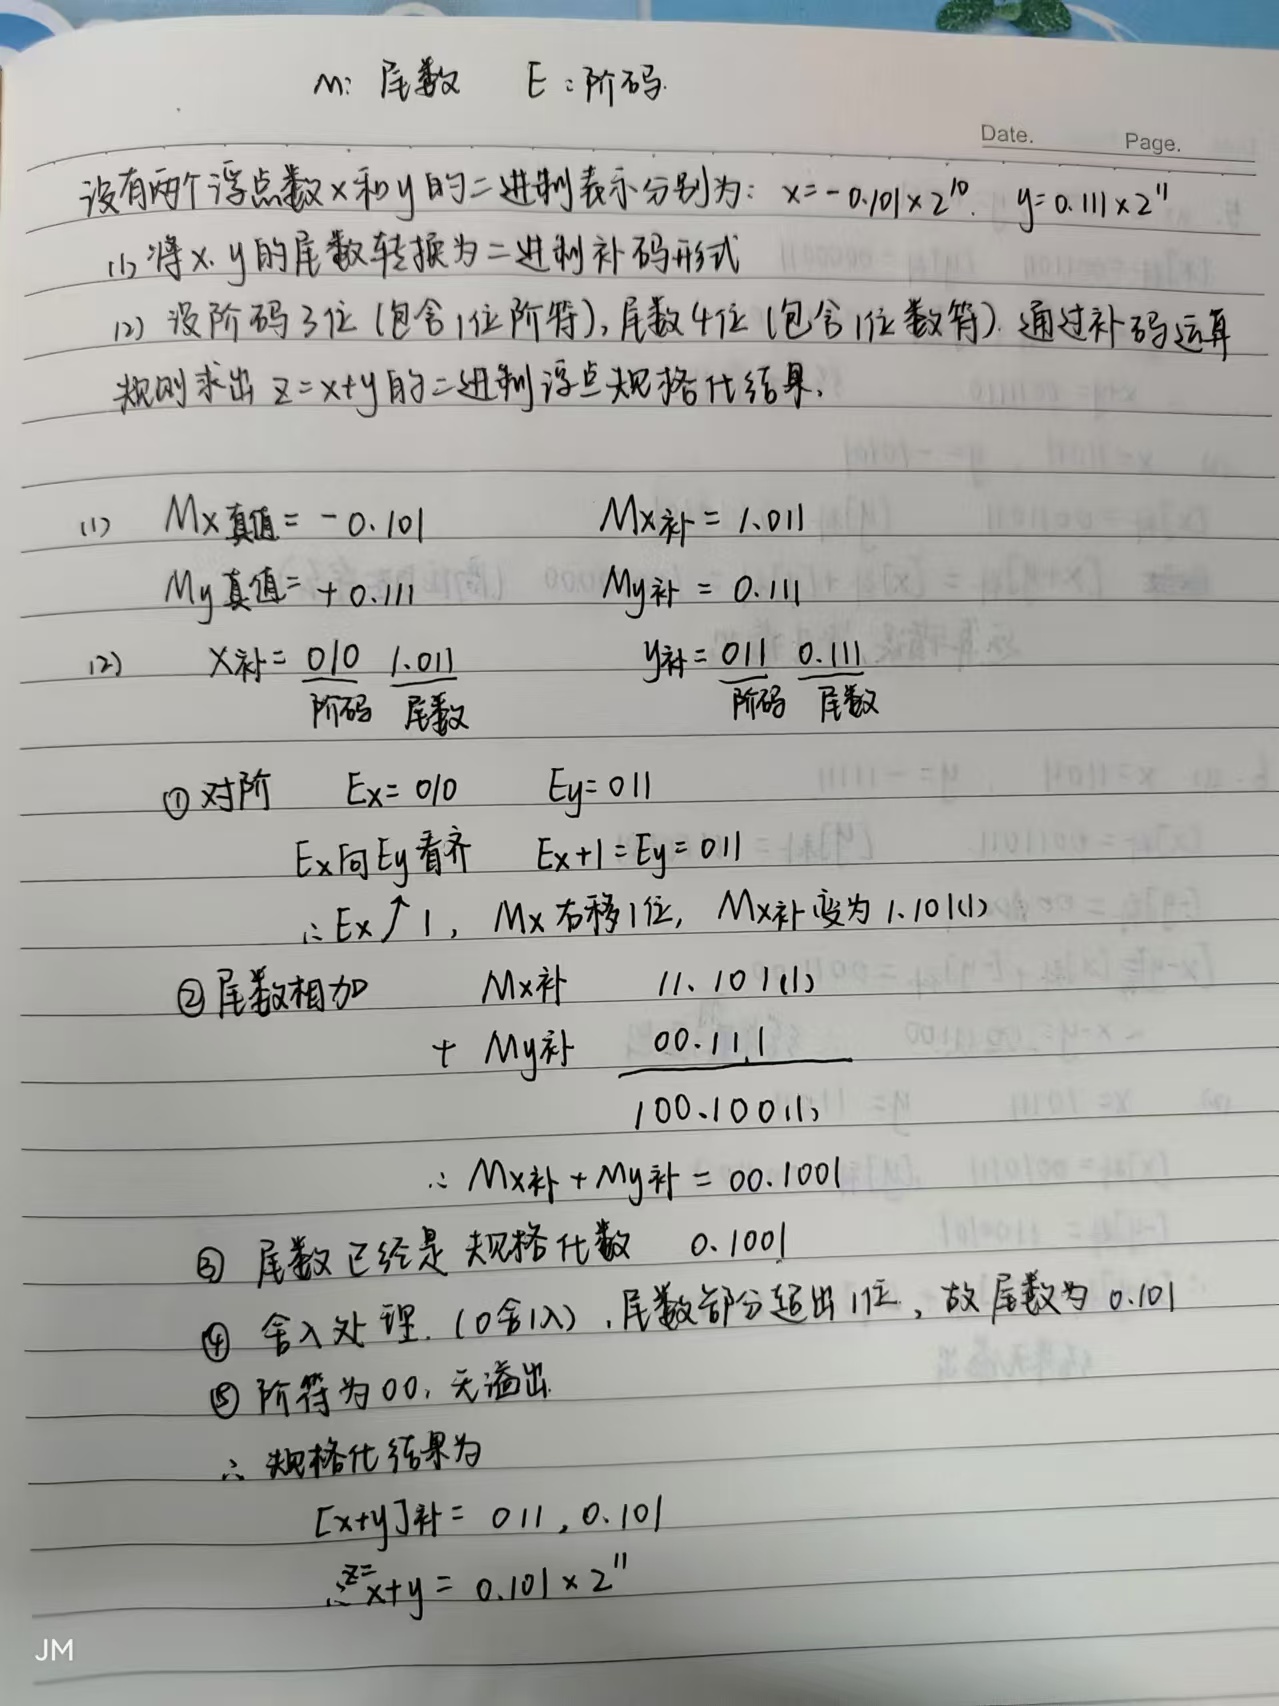 M: 尾数 E:阶码
Date. Page.
设有两个浮点数x和y的二进制表示分别为: x=-0.101×2^10. y=0.111×2^11
(1) 将x.y的尾数转换为二进制补码形式
(2) 设阶码3位(包含1位阶符),尾数4位(包含1位数符).通过补码运算
规则求出z=x+y的二进制浮点规格化结果.
(1) Mx真值=-0.101 Mx补=1.011
My真值=+0.111 My补=0.111
(2) x补=010 1.011 y补=011 0.111
阶码 尾数 阶码 尾数
①对阶 Ex=010 Ey=011
Ex向Ey看齐 Ex+1=Ey=011
∴Ex↑1, Mx右移1位, Mx补变为1.101(1)
②尾数相加 Mx补 11.101(1)
+ My补 00.111
100.100(1)
∴Mx补+My补=00.1001
③ 尾数已经是规格化数 0.1001
④ 舍入处理.(0舍1入),尾数部分超出1位,故尾数为0.101
⑤ 阶符为00,无溢出
∴规格化结果为
[x+y]补=011,0.101
∴z=x+y=0.101×2^11
JM